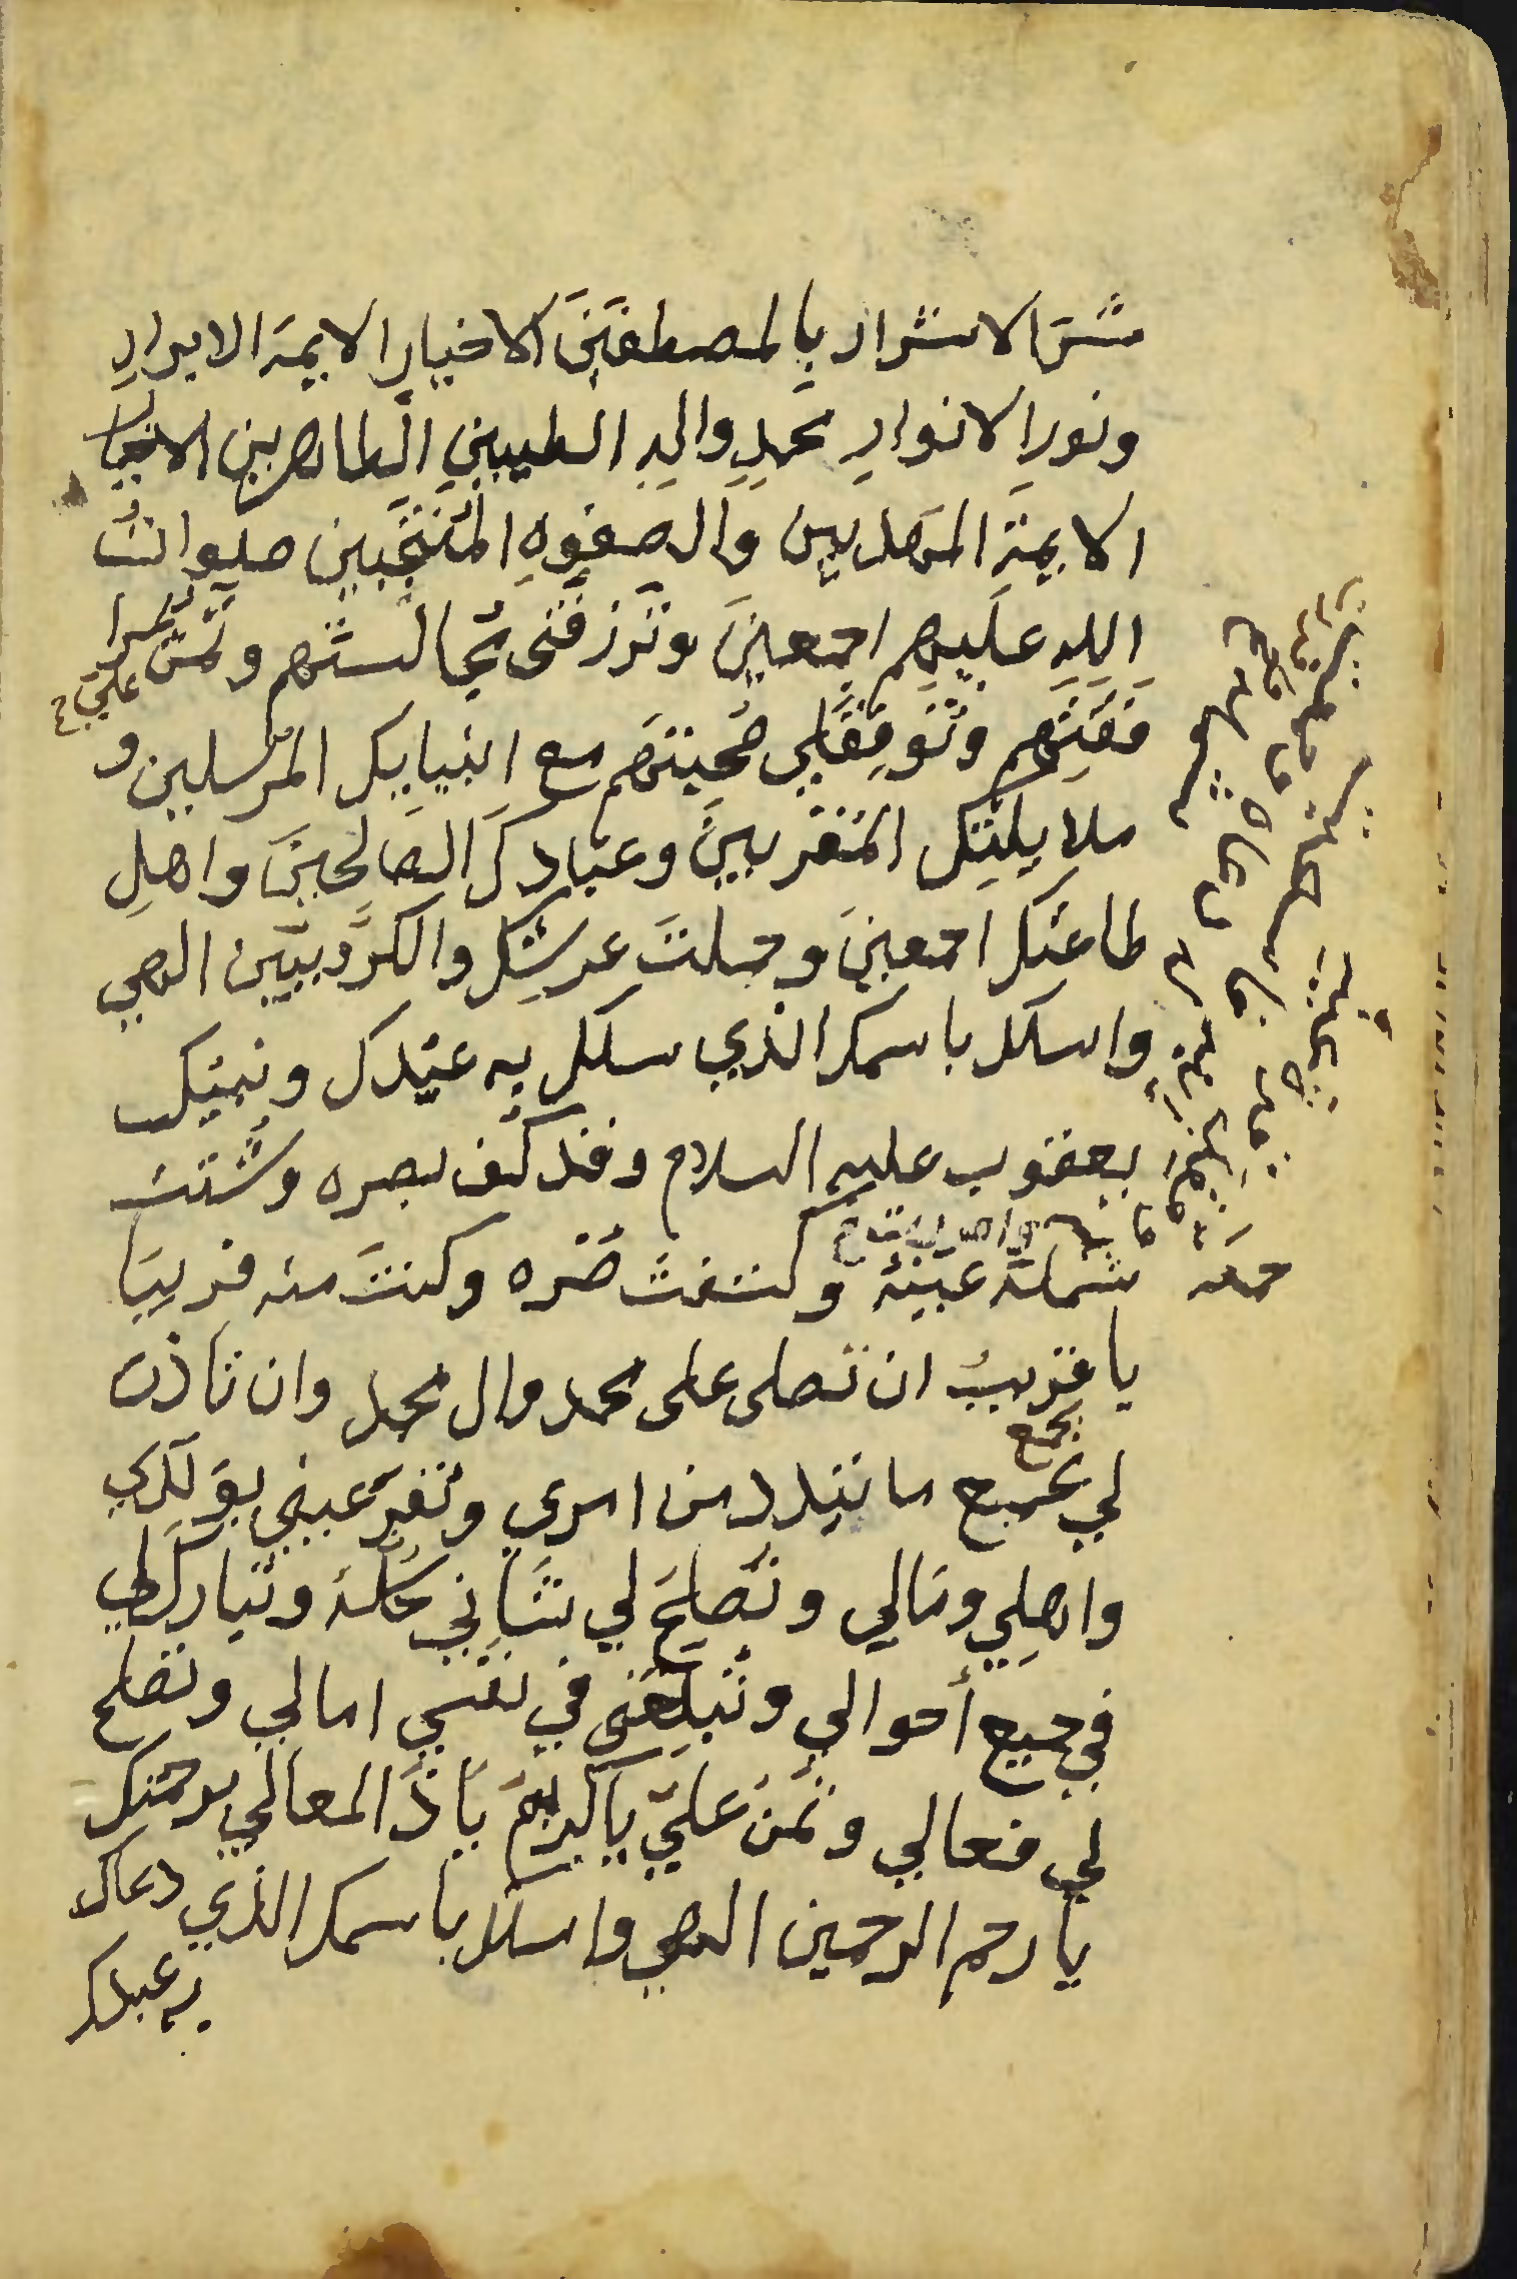 شر الاشرار بالمصطفين الاخيار الايمة الابرار
ونور الانوار محمد واله الطيبين الطاهرين الاخيار
الايمة المهديين والصفوه المنتجبين صلوات
الله عليهم اجمعين وترزقني مجالستهم وتمن علي
وتوفق لي صحبتهم مع انبيايك المرسلين و
ملايكتك المقربين وعبادك الصالحين واهل
طاعتك اجمعين وحملت عرشك والكروبيين الهي
واسلك باسمك الذي سلك به عبدك ونبيك
يعقوب عليه السلام وقد كف بصره وشتت
شمله عينه وكشفت ضره وكنت منه قريبا
يا قريب ان تصلى على محمد وال محمد وان تاذن
بجمع
لي بجميع ما تبدد من امري وتقر عيني بولدي
واهلي ومالي وتصلح لي شاني كله وتبارك لي
في جميع أحوالي وتبلغني في نفسي امالي وتصلح
لي فعالي وتمن علي يا كريم يا ذا المعالي برحمتك
يا رحم الرحمين الهي واسلك باسمك الذي دعاك
به عبدك